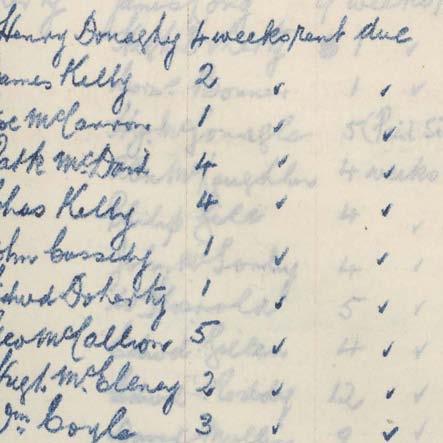 Henry Donaghy 4 weeks rent due
James Kelly 2 ✓ ✓
Joe McCarron 1 ✓ ✓
Patk McDaid 4 ✓ ✓
Chas Kelly 4 ✓ ✓
John Cassidy 1 ✓ ✓
Richard Doherty 1 ✓ ✓
Geo McCallion 5 ✓ ✓
Hugh McEleney 2 ✓ ✓
Wm Coyle 3 ✓ ✓